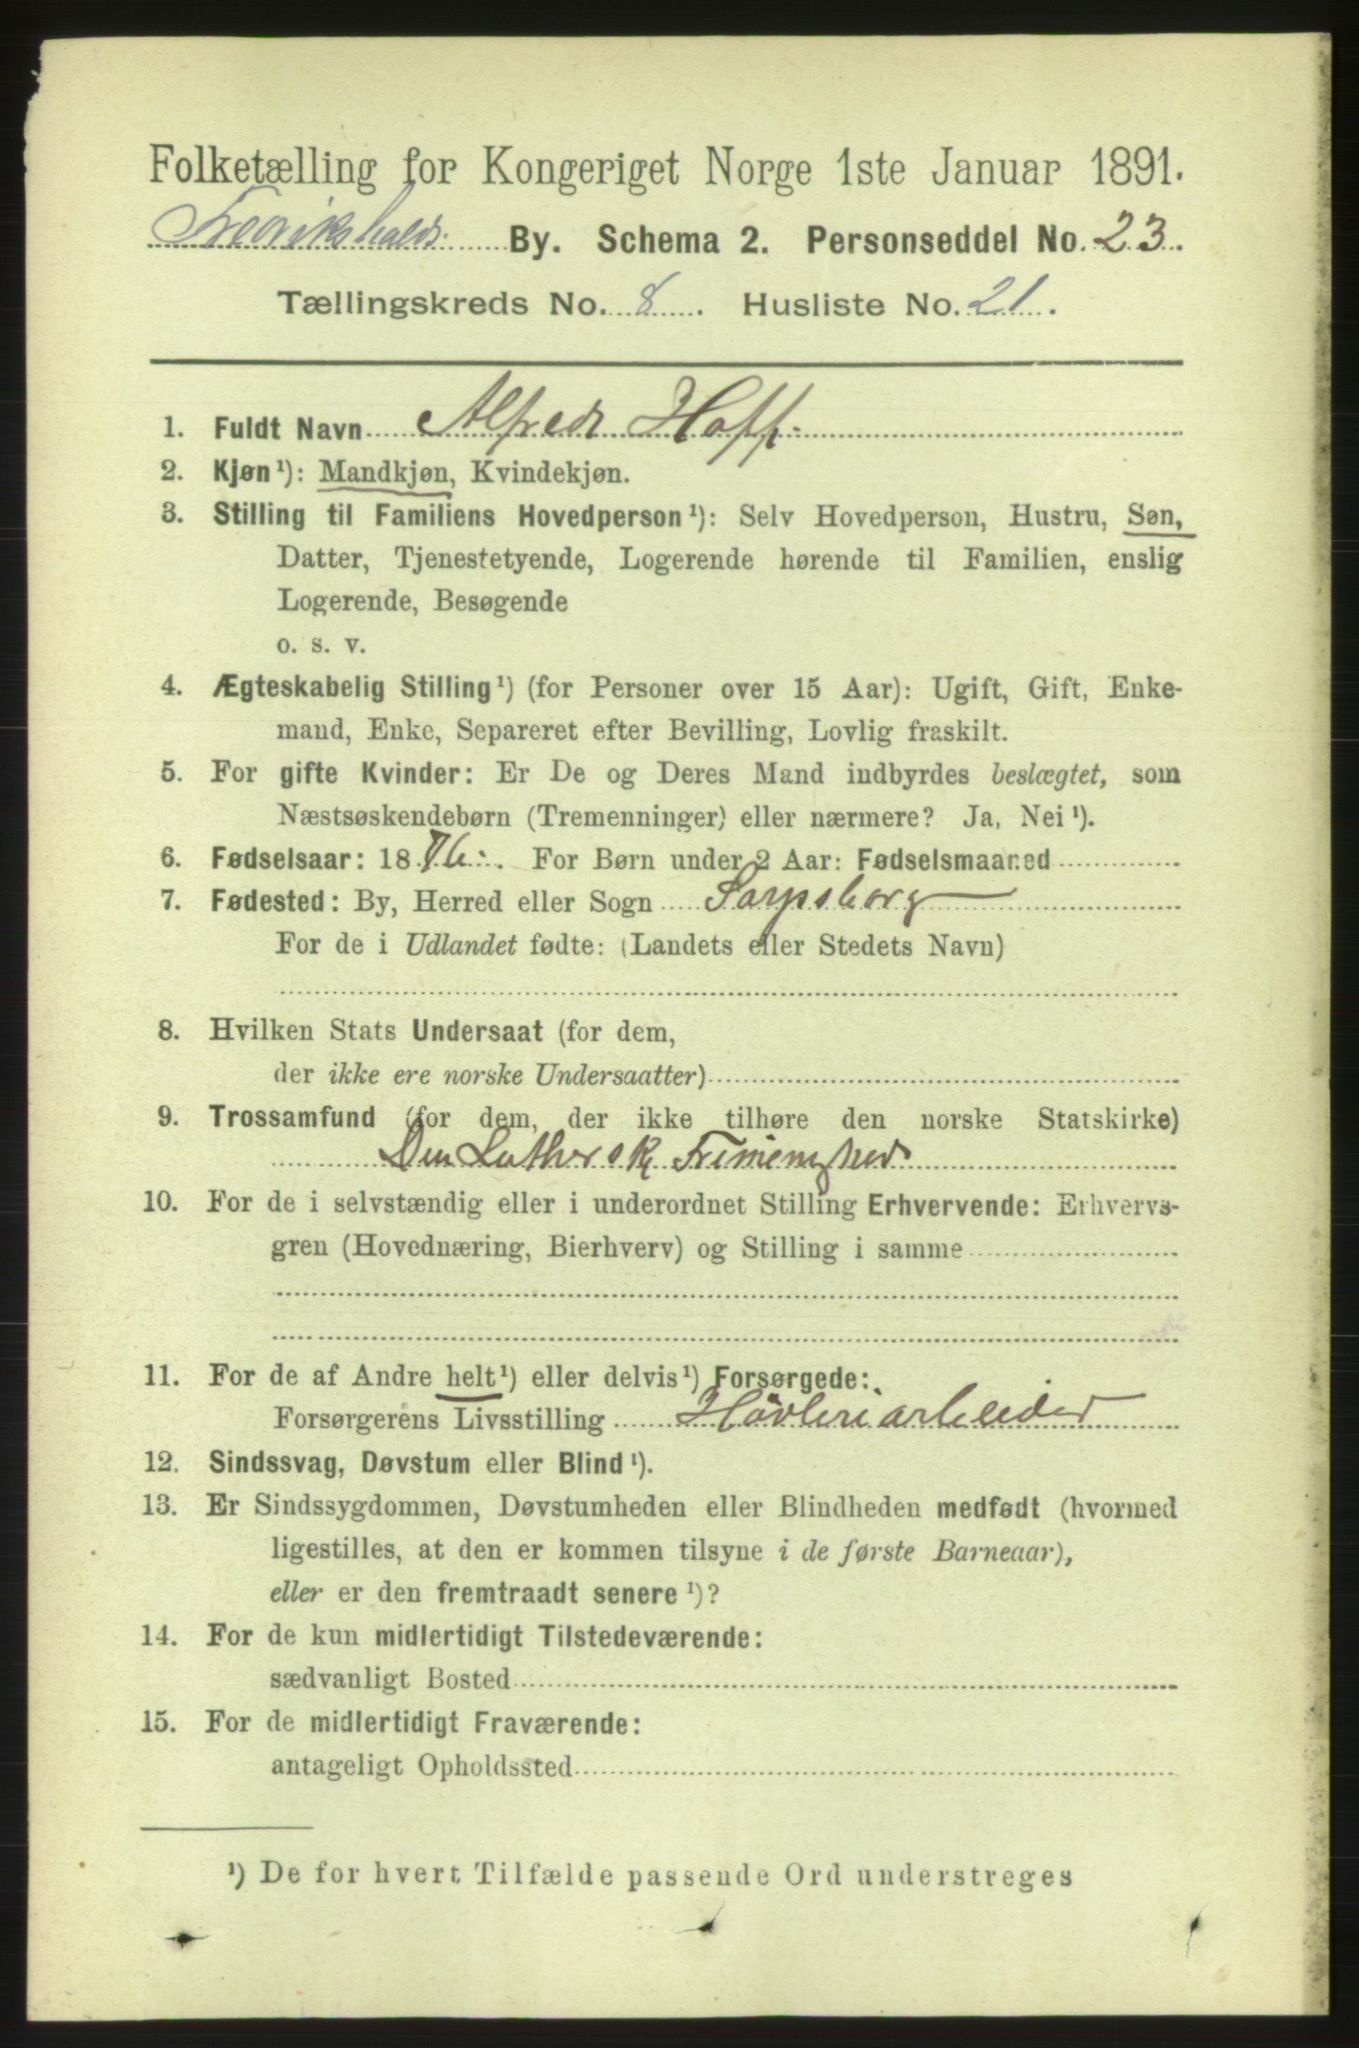 Folketælling for Kongeriget Norge 1ste Januar 1891.
Fredrikshalds By. Schema 2. Personseddel No. 23.
Tællingskreds No. 8. Husliste No. 21.
1. Fuldt Navn Alfred Hoff.
2. Kjøn¹): Mandkjøn, Kvindekjøn.
3. Stilling til Familiens Hovedperson¹): Selv Hovedperson, Hustru, Søn,
Datter, Tjenestetyende, Logerende hørende til Familien, enslig
Logerende, Besøgende
o. s. v.
4. Ægteskabelig Stilling¹) (for Personer over 15 Aar): Ugift, Gift, Enke-
mand, Enke, Separeret efter Bevilling, Lovlig fraskilt.
5. For gifte Kvinder: Er De og Deres Mand indbyrdes beslægtet, som
Næstsøskendebørn (Tremenninger) eller nærmere? Ja, Nei¹).
6. Fødselsaar: 1876. For Børn under 2 Aar: Fødselsmaaned
7. Fødested: By, Herred eller Sogn Sarpsborg
For de i Udlandet fødte: (Landets eller Stedets Navn)
8. Hvilken Stats Undersaat (for dem,
der ikke ere norske Undersaatter)
9. Trossamfund (for dem, der ikke tilhøre den norske Statskirke)
Den Luthersk Frimenighed
10. For de i selvstændig eller i underordnet Stilling Erhvervende: Erhvervs-
gren (Hovednæring, Bierhverv) og Stilling i samme
11. For de af Andre helt¹) eller delvis¹) Forsørgede:
Forsørgerens Livsstilling Høvleriarbeider
12. Sindssvag, Døvstum eller Blind¹).
13. Er Sindssygdommen, Døvstumheden eller Blindheden medfødt (hvormed
ligestilles, at den er kommen tilsyne i de første Barneaar),
eller er den fremtraadt senere¹)?
14. For de kun midlertidigt Tilstedeværende:
sædvanligt Bosted
15. For de midlertidigt Fraværende:
antageligt Opholdssted
¹) De for hvert Tilfælde passende Ord understreges